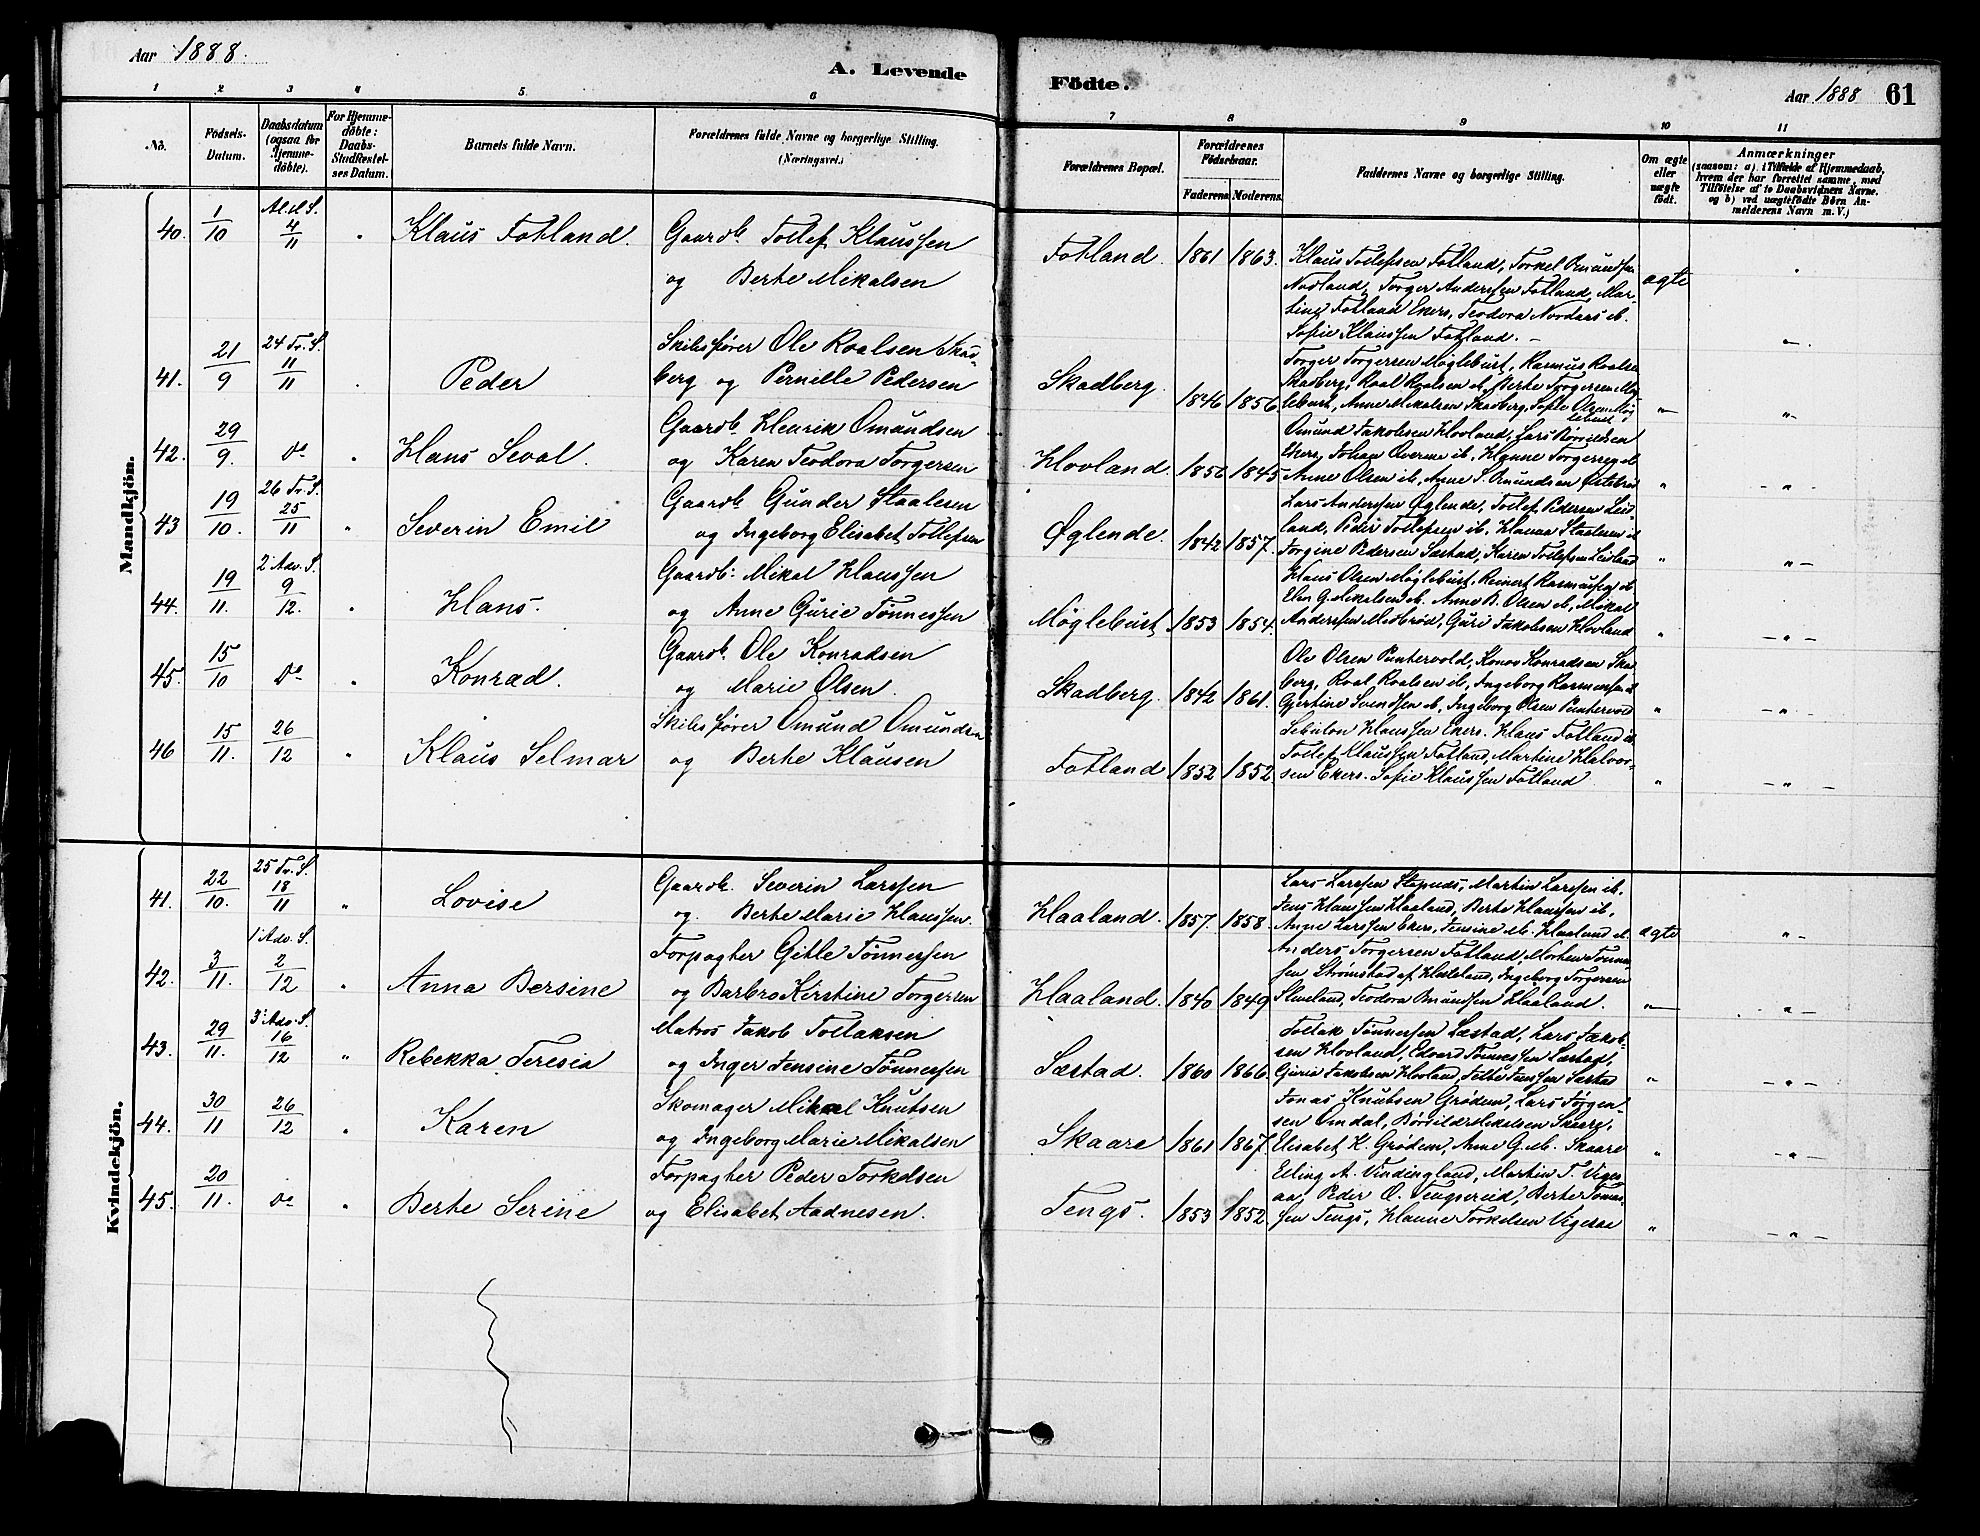 Aar 1888.
A. Levende
Födte.
Aar 1888 61
1 2 3 4 5. 6 7 8 9 10 11
No.
Födsels-
Datum.
Daabsdatum
(ogsaa for
Hjemme-
döbte).
For Hjemme-
döbte:
Daabs-
Stadfæstel-
ses Datum.
Barnets fulde Navn.
Forældrenes fulde Navne og borgerlige Stilling.
(Næringsvei.)
Forældrenes Bopæl.
Forældrenes
Födselsaar.
Faderens Moderens.
Faddernes Navne og borgerlige Stilling.
Om ægte
eller
uægte
født.
Anmærkninger
(saasom: a) i Tilfælde af Hjemmedaab,
hvem der har forrettet samme, med
Tilföielse af to Daabsvidners Navne,
og b) ved uægtefödte Börn An-
melderens Navn m. V.)
Mandkjön.
40. 1/10 Al.d S. 4/11 " Klaus Fotland. Gaardb. Tollef Klaussen
og Berte Mikalsen
Fotland 1861 1863. Klaus Tollefsen Fotland, Torkel Omundsen
Nodland, Torger Anderssen Fotland, Mar-
tine Fotland Ekers, Teodora Nordaas ib.
Sofie Klaussen Fotland. –
ægte "
41. 21/9 24 Tr. S. 11/11 " Peder Skibsfører Ole Roalsen Skad-
berg og Pernille Pedersen
Skadberg. 1846 1856. Torger Torgersen Møglebust, Rasmus Roalsen
Skadberg, Roal Roalsen ib, Berte Torgersen Møg-
lebust, Anne Mikalsen Skadberg, Sofie Olsen Møg
lebust
" "
42. 29/9. do " Hans Seval. Gaardb. Henrik Omundsen
og Karen Teodora Torgersen
Hovland. 1850 1845 Omund Jakobsen Hovland, Lars
Ekers, Johan ib. Hanne Torgersen ib
Anne Olsen ib, Anne S. Omundsen
" - " -
43 19/10. 26 Tr. S. 25/11 " Severin Emil Gaardb. Gunder Staalesen
og Ingeborg Elisabet Tollefsen
Øglende. 1842 1857. Lars Anderssen Øglende, Tollef Pedersen Leid-
land, Peder Tollefsen ib, Hanna Staalesen ib
Jorgine Pedersen Sæstad, Karen Tollefsen Leidland
" " –
44. 19/11. 2 Adv. S. 9/12. " Hans. Gaardb. Mikal Hanssen
og Anne Gurie Tønnessen
Møglebust 1853 1854. Hans Olsen Møglebust, Reinert Rasmussen ib
G. Mikalsen ib. Anne B. Olsen ib, Mikal
Anderssen Midbrød, Guri Jakobsen Hovland
" - " -
45. 15/10 do " Konrad. Gaardb. Ole Konradsen
og Marie Olsen.
Skadberg. 1842 1861. Ole Olsen Puntervold, Konrad Konradsen Skad-
berg, Roal Roalsen ib, Ingeborg Rasmussen ib
Gjertine Svendsen ib, Ingeborg Olsen Puntervold
" - " -
46 15/11. 26/12 " Klaus Selmar Skibsfører Omund Omundsen
og Berte Klausen
Fotland 1852 1852. Sebulon Hanssen Ekers. Klaus Fotland ib.
Tollef Klaussen Fotland, Martine Halvor-
sen Ekers. Sofie Klaussen Fotland
" - " -
Kvindekjön.
41. 22/10. 25 Tr. S. 18/11 " Lovise Gaardb. Severin Larssen
og Berte Marie Hanssen.
Haaland. 1857. 1858. Lars Larssen Stapnes, Martin Larssen ib.
Jens Hanssen Haaland, Berte Hanssen ib.
Anne Larssen Ekers, Jensine M. Haaland ib.
ægte " -
42. 3/11. 1 Adv. S. 2/12 " Anna Bersine Forpagter Gitle Tønnessen
og Barbro Kirstine Torgersen
Haaland. 1840 1849 Anders Torgersen Fotland, Morten Tønnes-
sen Strømstad af Helleland, Ingeborg Torgersen
Sleveland, Teodora Omundsen Haaland.
" - " -
43. 29/11. 3 Adv. S. 16/12 " Rebekka Teresia Matros Jakob Tollaksen
og Inger Jensine Tønnessen
Sæstad. 1860 1866. Tollak Tønnessen Sæstad, Lars Jakob-
sen Hovland, Edvard Tønnessen Sæstad,
Gurie Jakobsen Hovland, Jenssen Sæstad
" - " -
44. 30/11 26/12 " Karen Skomager Mikael Knutsen
og Ingeborg Marie Mikalsen
Skaare 1861 1867. Jonas Knutsen Grødem, Lars Jørgen-
sen Omdal, Børsild Mikalsen Skaare,
Elisabet K. Grødem, Anne G. M. Skaare
" - " -
45. 20/11. do " Berte Serine Forpagter Peder Torkelsen
og Elisabet Aadnesen.
Tengs. 1853 1852. Elling A. Vindingland, Martin T. Viges-
aa, Peder O. Tengsereid, Berte Tønnes-
sen Tengs, Hanne Torkelsen Vigesaa
" - " -